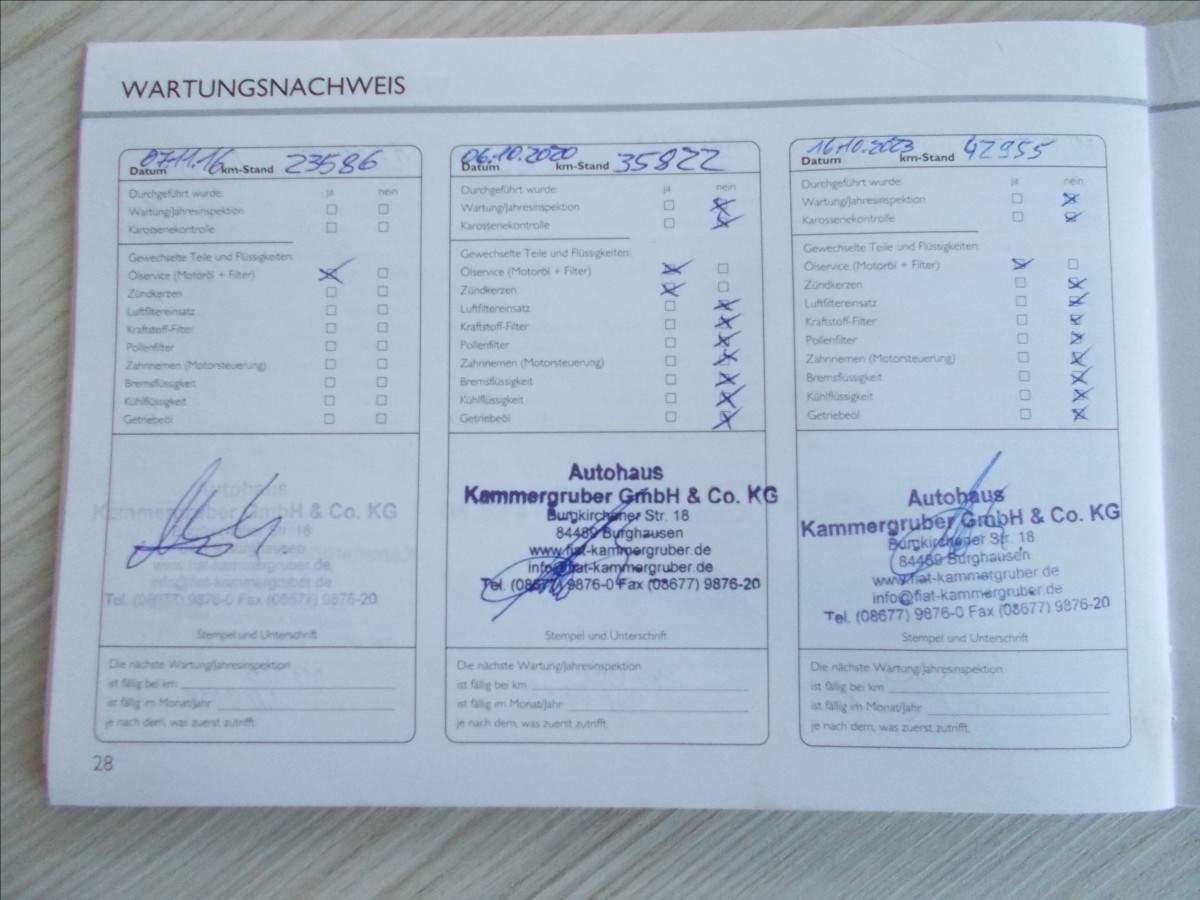 WARTUNGSNACHWEIS
07.11.16 23586
Datum km-Stand
Durchgeführt wurde: ja nein
Wartung/Jahresinspektion
Karosseriekontrolle
Gewechselte Teile und Flüssigkeiten:
Ölservice (Motoröl + Filter)
Zündkerzen
Luftfiltereinsatz
Kraftstoff-Filter
Pollenfilter
Zahnriemen (Motorsteuerung)
Bremsflüssigkeit
Kühlflüssigkeit
Getriebeöl
Autohaus
Kammergruber GmbH & Co. KG
18
Burghausen
www.fiat-kammergruber.de
info@fiat-kammergruber.de
Tel. (08677) 9876-0 Fax (08677) 9876-20
Stempel und Unterschrift
Die nächste Wartung/Jahresinspektion
ist fällig bei km
ist fällig im Monat/Jahr
je nach dem, was zuerst zutrifft.
06.10.2020 35822
Datum km-Stand
Durchgeführt wurde: ja nein
Wartung/Jahresinspektion
Karosseriekontrolle
Gewechselte Teile und Flüssigkeiten:
Ölservice (Motoröl + Filter)
Zündkerzen
Luftfiltereinsatz
Kraftstoff-Filter
Pollenfilter
Zahnriemen (Motorsteuerung)
Bremsflüssigkeit
Kühlflüssigkeit
Getriebeöl
Autohaus
Kammergruber GmbH & Co. KG
Burgkirchener Str. 18
84489 Burghausen
www.fiat-kammergruber.de
info@fiat-kammergruber.de
Tel. (08677) 9876-0 Fax (08677) 9876-20
Stempel und Unterschrift
Die nächste Wartung/Jahresinspektion
ist fällig bei km
ist fällig im Monat/Jahr
je nach dem, was zuerst zutrifft.
16.10.2023 42955
Datum km-Stand
Durchgeführt wurde: ja nein
Wartung/Jahresinspektion
Karosseriekontrolle
Gewechselte Teile und Flüssigkeiten:
Ölservice (Motoröl + Filter)
Zündkerzen
Luftfiltereinsatz
Kraftstoff-Filter
Pollenfilter
Zahnriemen (Motorsteuerung)
Bremsflüssigkeit
Kühlflüssigkeit
Getriebeöl
Autohaus
Kammergruber GmbH & Co. KG
Burgkirchener Str. 18
84489 Burghausen
www.fiat-kammergruber.de
info@fiat-kammergruber.de
Tel. (08677) 9876-0 Fax (08677) 9876-20
Stempel und Unterschrift
Die nächste Wartung/Jahresinspektion
ist fällig bei km
ist fällig im Monat/Jahr
je nach dem, was zuerst zutrifft.
28